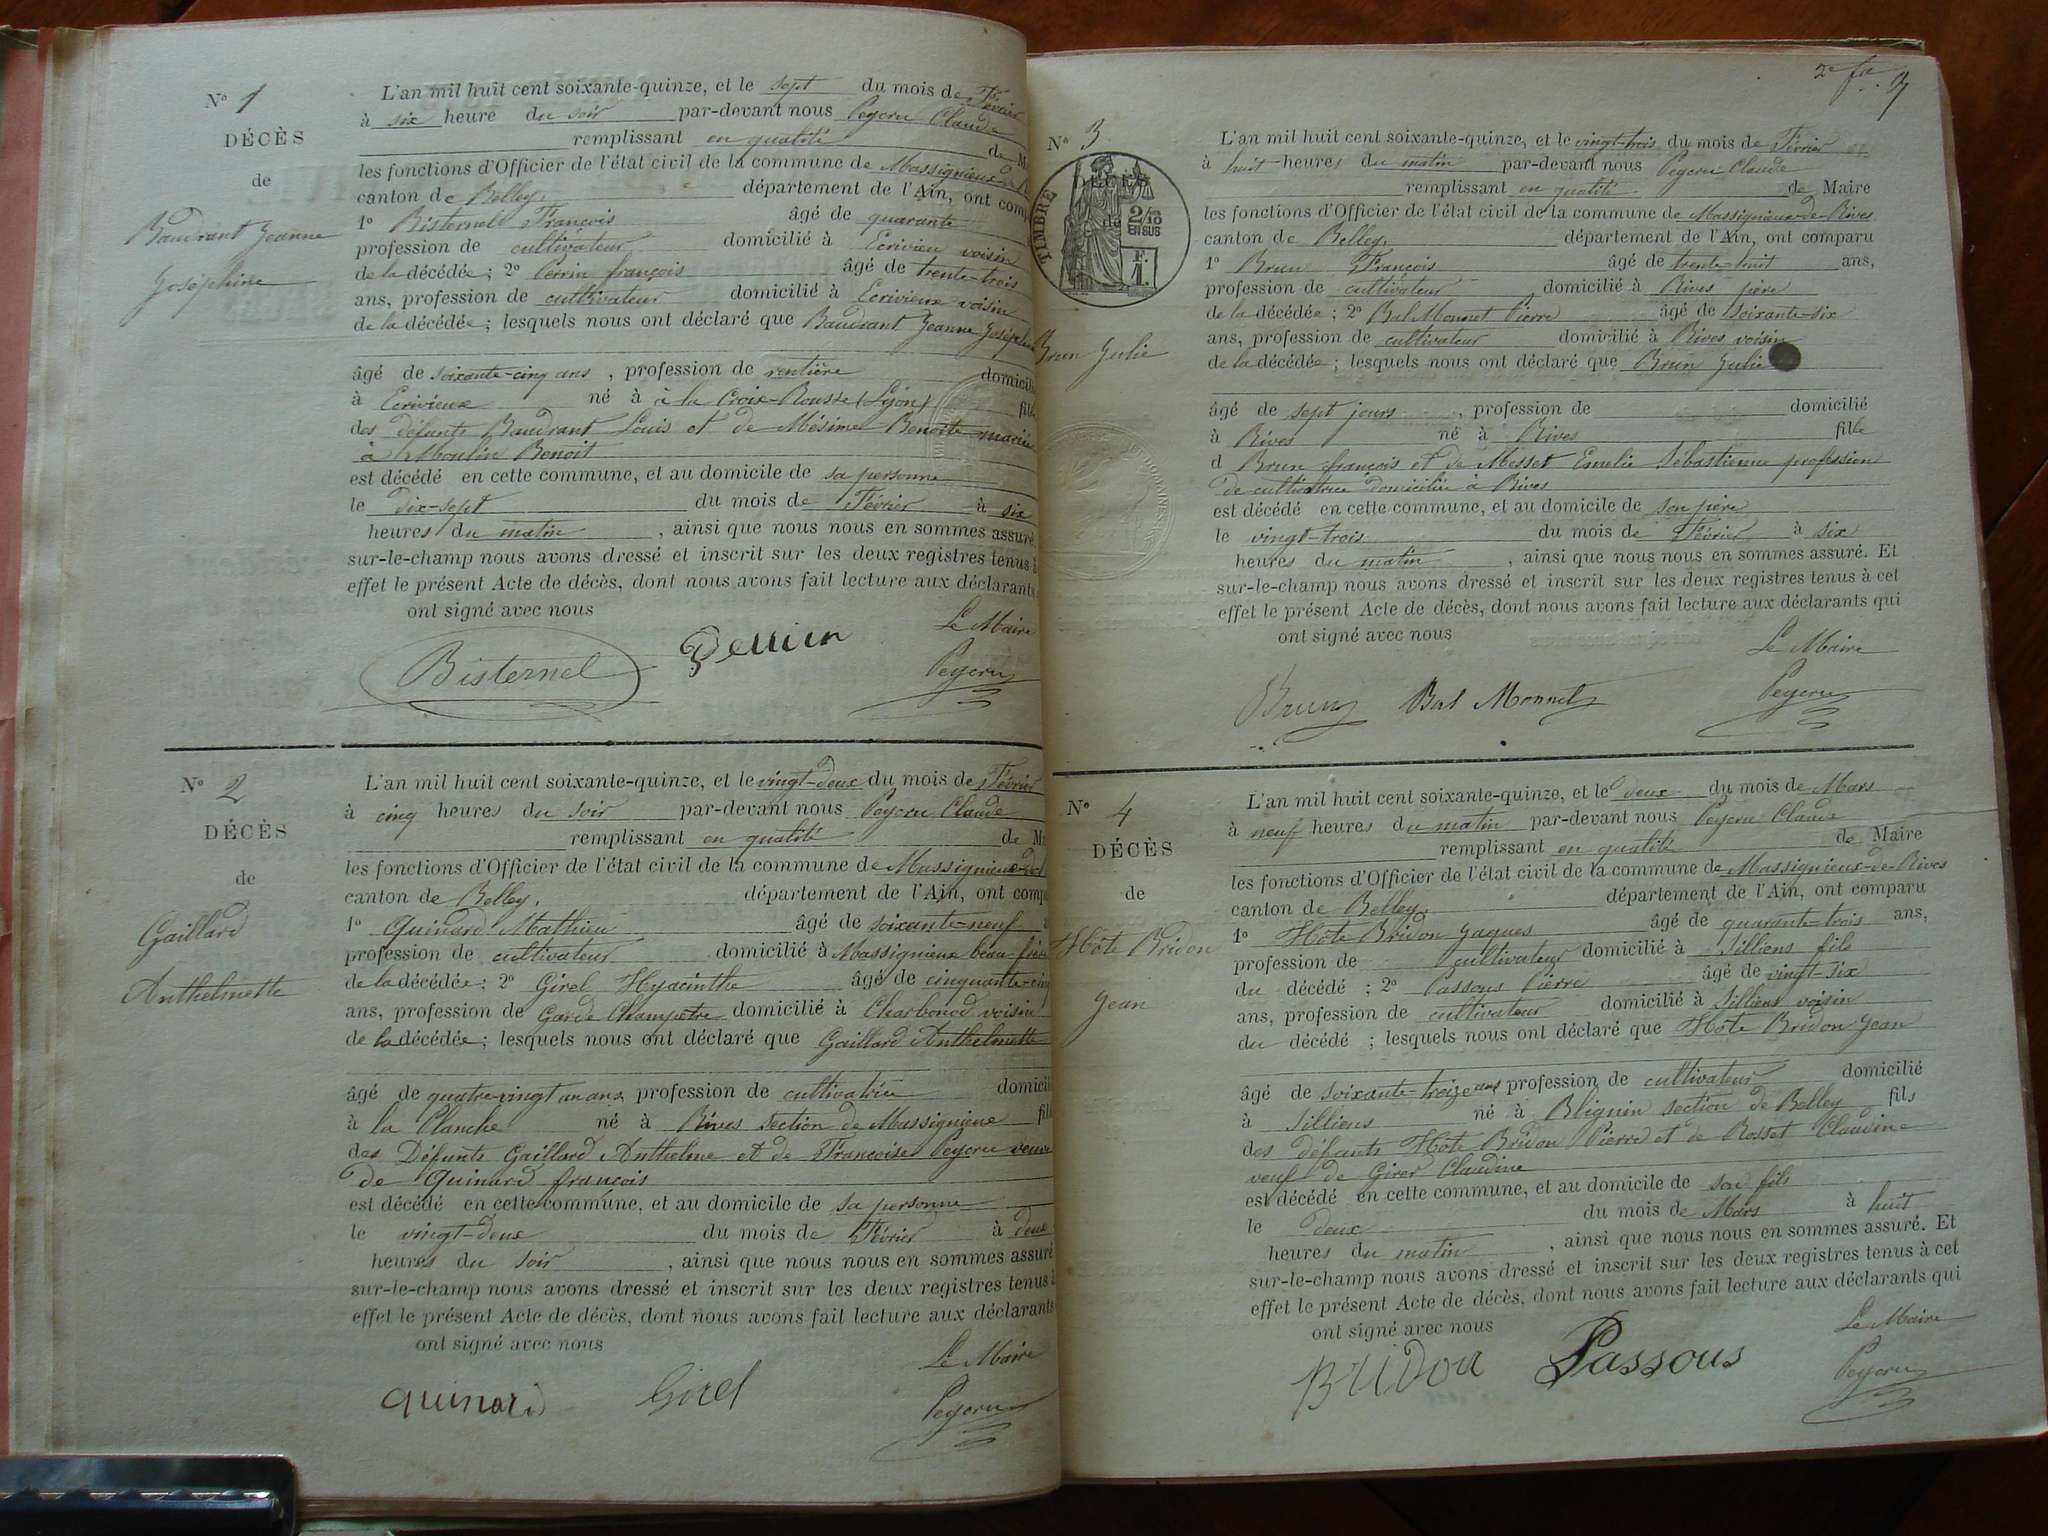 N° 1
DÉCÈS
de
Baudrant Jeanne
Joséphine
L'an mil huit cent soixante-quinze, et le sept du mois de Février
à six heure du soir par-devant nous Peycru Claude
remplissant en qualité de M
les fonctions d'Officier de l'état civil de la commune de Massignieux-de-R
canton de Belley, département de l'Ain, ont comp
1° Bisternel François âgé de quarante
profession de cultivateur domicilié à Ecrivieu voisin
de la décédée ; 2° Perrin françois âgé de trente-trois
ans, profession de cultivateur domicilié à Ecrivieux voisin
de la décédée ; lesquels nous ont déclaré que Baudrant Jeanne Joséphine
âgé de soixante-cinq ans, profession de rentière domicilié
à Ecrivieux né à à la Croix-Rousse (Lyon) fille
des défunts Baudrant Louis et de Mésime Benoite mariée
à Moulin Benoit
est décédé en cette commune, et au domicile de sa personne
le dix-sept du mois de Février à six
heures du matin, ainsi que nous nous en sommes assuré
sur-le-champ nous avons dressé et inscrit sur les deux registres tenus à
effet le présent Acte de décès, dont nous avons fait lecture aux déclarants
ont signé avec nous
Le Maire
Bisternel Perrin Peycru
N° 2
DÉCÈS
de
Gaillard
Anthelmette
L'an mil huit cent soixante-quinze, et le vingt-deux du mois de Février
à cinq heures du soir par-devant nous Peycru Claude
remplissant en qualité de M
les fonctions d'Officier de l'état civil de la commune de Massignieux-de-R
canton de Belley, département de l'Ain, ont comp
1° Quinard Mathieu âgé de soixante-neuf
profession de cultivateur domicilié à Massignieux beau-frère
de la décédée ; 2° Girel Hyacinthe âgé de cinquante-cinq
ans, profession de Garde Champêtre domicilié à Charbonod voisin
de la décédée ; lesquels nous ont déclaré que Gaillard Anthelmette
âgé de quatre-vingt un ans, profession de cultivatrice domicilié
à la Planche né à Rives section de Massignieux fille
des Défunts Gaillard Anthelme et de Françoise Peycru veuve
de Quinard françois
est décédé en cette commune, et au domicile de sa personne
le vingt-deux du mois de Février à deux
heures du soir, ainsi que nous nous en sommes assuré
sur-le-champ nous avons dressé et inscrit sur les deux registres tenus à
effet le présent Acte de décès, dont nous avons fait lecture aux déclarants
ont signé avec nous
Le Maire
Quinard Girel Peycru
2e
N° 3
TIMBRE
2/10
EN SUS
F.
1.
Brun Julie
L'an mil huit cent soixante-quinze, et le vingt-trois du mois de Février
à huit heures du matin par-devant nous Peycru Claude
remplissant en qualité de Maire
les fonctions d'Officier de l'état civil de la commune de Massignieux-de-Rives
canton de Belley, département de l'Ain, ont comparu
1° Brun François âgé de trente-huit ans,
profession de cultivateur, domicilié à Rives père
de la décédée ; 2° Bal Monnet Pierre âgé de soixante-six
ans, profession de cultivateur domicilié à Rives voisin
de la décédée ; lesquels nous ont déclaré que Brun Julie
âgé de sept jours, profession de domicilié
à Rives né à Rives fille
d Brun françois et de Messet Emelie Sébastienne profession
de cultivatrice domiciliée à Rives
est décédé en cette commune, et au domicile de son père
le vingt-trois du mois de Février à six
heures du matin, ainsi que nous nous en sommes assuré. Et
sur-le-champ nous avons dressé et inscrit sur les deux registres tenus à cet
effet le présent Acte de décès, dont nous avons fait lecture aux déclarants qui
ont signé avec nous
Le Maire
Brun Bal Monnet Peycru
N° 4
DÉCÈS
de
Hôte Bridon
Jean
L'an mil huit cent soixante-quinze, et le deux du mois de Mars
à neuf heures du matin par-devant nous Peycru Claude
remplissant en qualité de Maire
les fonctions d'Officier de l'état civil de la commune de Massignieux-de-Rives
canton de Belley, département de l'Ain, ont comparu
1° Hôte Bridon Jaques âgé de quarante-trois ans,
profession de cultivateur domicilié à Silliens fils
du décédé ; 2° Passous Pierre âgé de vingt six
ans, profession de cultivateur domicilié à Silliens voisin
du décédé ; lesquels nous ont déclaré que Hôte Bridon Jean
âgé de soixante-treize ans profession de cultivateur domicilié
à Silliens né à Blignin section de Belley fils
des défunts Hôte Bridon Pierre et de Rosset Claudine
veuf de Girer Claudine
est décédé en cette commune, et au domicile de son fils
le deux du mois de Mars à huit
heures du matin, ainsi que nous nous en sommes assuré. Et
sur-le-champ nous avons dressé et inscrit sur les deux registres tenus à cet
effet le présent Acte de décès, dont nous avons fait lecture aux déclarants qui
ont signé avec nous
Le Maire
Bridon Passous Peycru